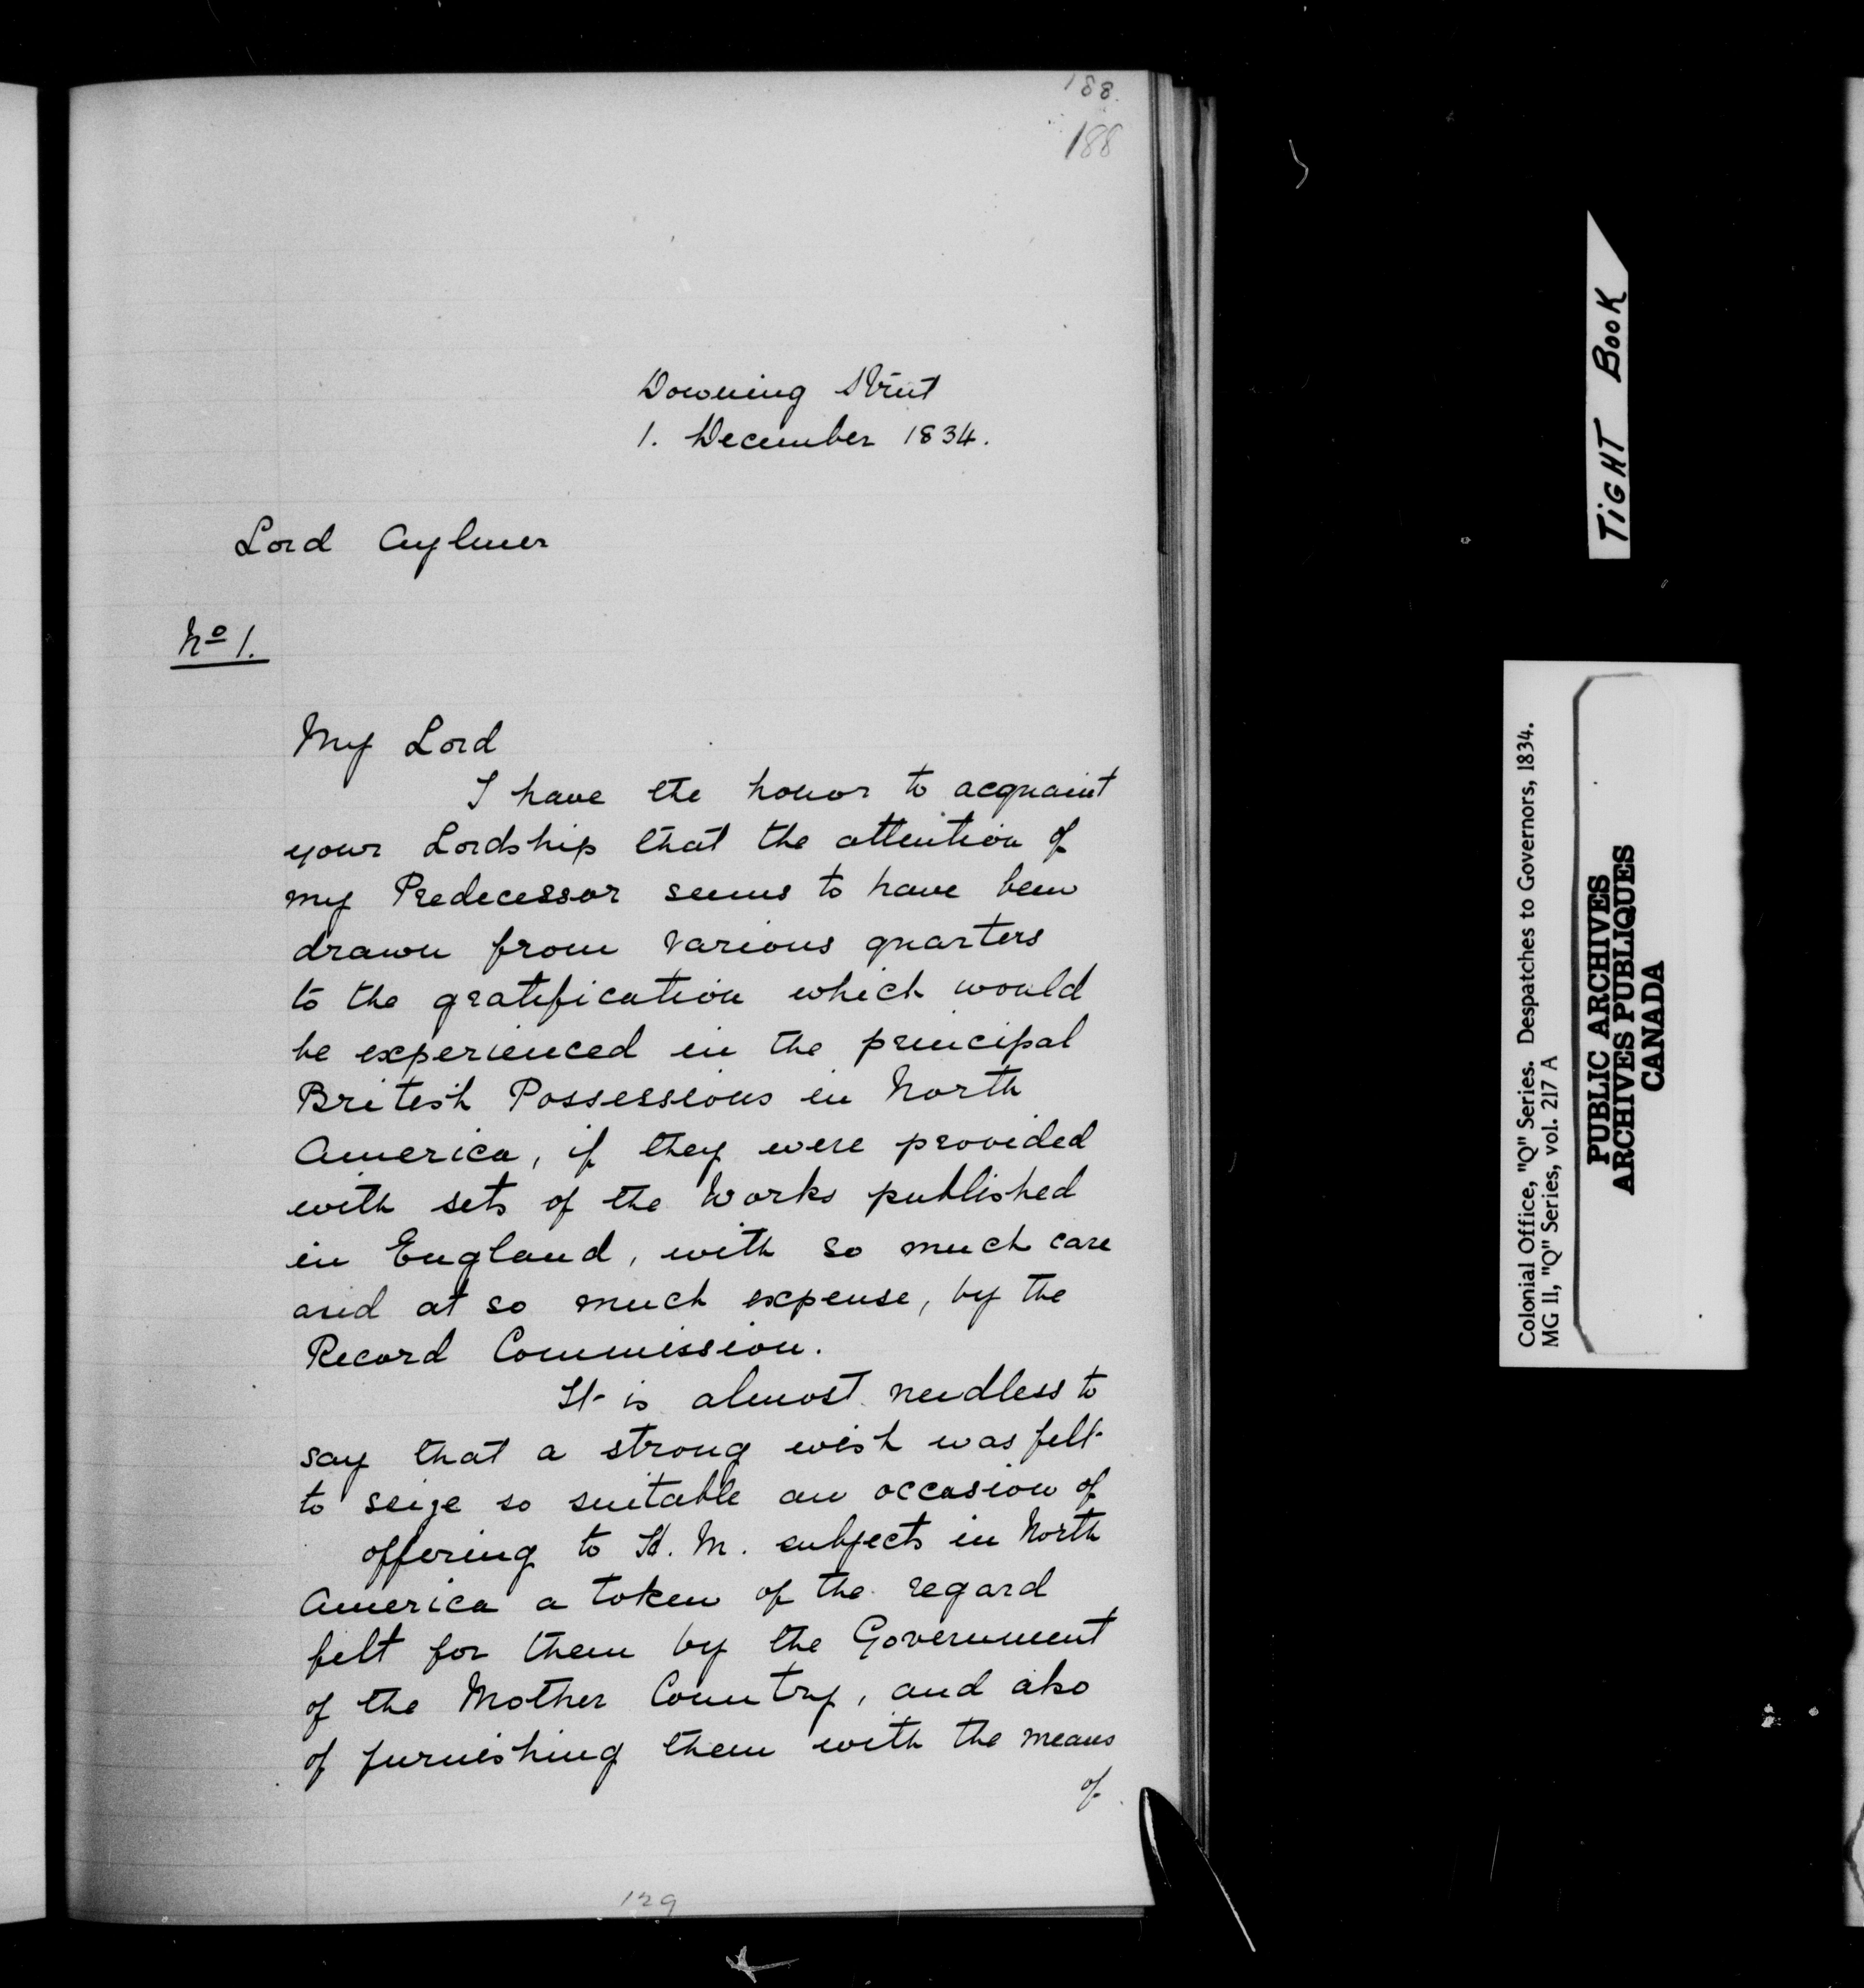 188.
188
Downing Street
1. December 1834.
Lord Aylmer
No 1.
My Lord
I have the honor to acquaint
your Lordship that the attention of
my Predecessor seems to have been
drawn from various quarters
to the gratification which would
be experienced in the principal
British Possessions in North
America, if they were provided
with sets of the Works published
in England, with so much care
and at so much expense, by the
Record Commission.
It is almost needless to
say that a strong wish was felt
to seize so suitable an occasion of
offering to H. M. subjects in North
America a token of the regard
felt for them by the Government
of the Mother Country, and also
of furnishing them with the means
of
129
TIGHT BOOK
Colonial Office, "Q" Series. Despatches to Governors, 1834.
MG 11, "Q" Series, vol. 217 A
PUBLIC ARCHIVES
ARCHIVES PUBLIQUES
CANADA